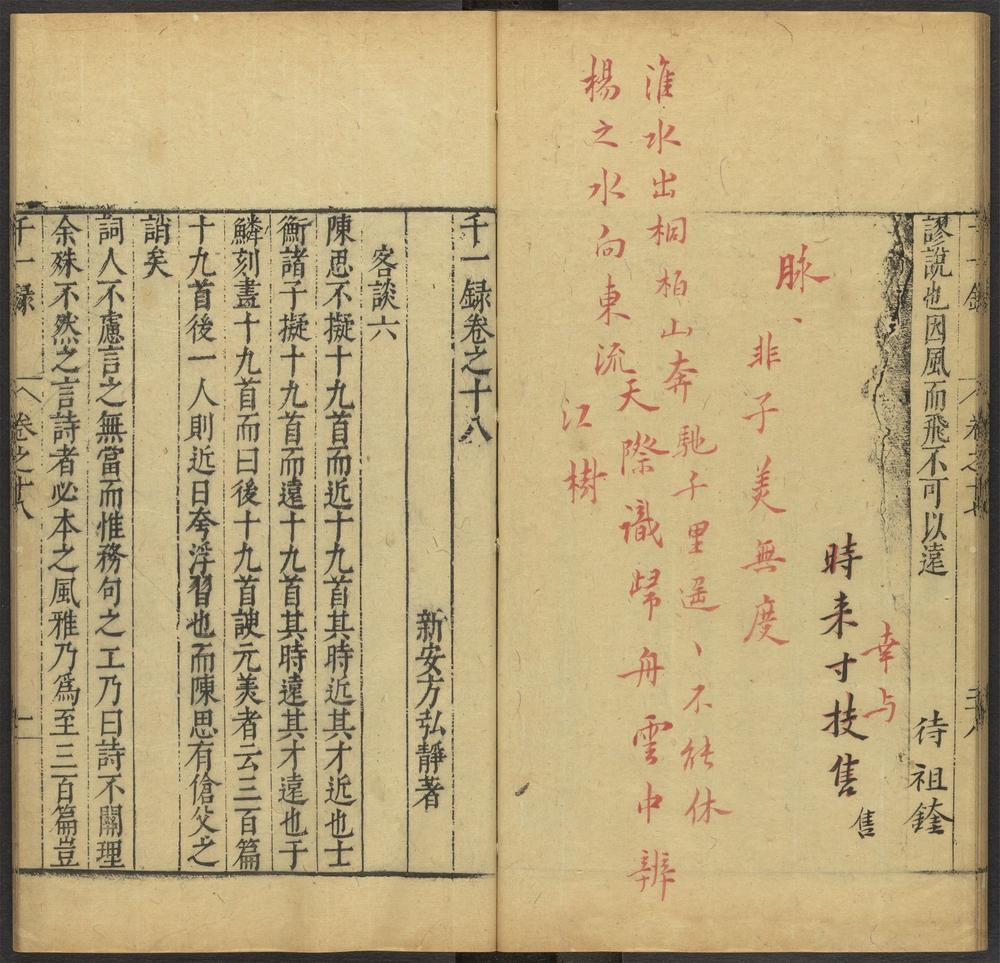 謬說也因風而飛不可以遠
待祖鍷
幸与
時来寸技售
售
脉、
非子美無度
淮水出桐柏山奔馳千里遥、不能休
楊之水向東流
天際識歸舟雲中辨
江樹
千一録卷之十八
新安方弘靜著
客談六
陳思不擬十九首而近十九首其時近其才近也士
衡諸子擬十九首而遠十九首其時遠其才遠也于
鱗刻畫十九首而曰後十九首諛元美者云三百篇
十九首後一人則近日夸浮習也而陳思有傖父之
誚矣
詞人不慮言之無當而惟務句之工乃曰詩不關理
余殊不然之言詩者必本之風雅乃爲至三百篇豈
千一録
卷之十八
一